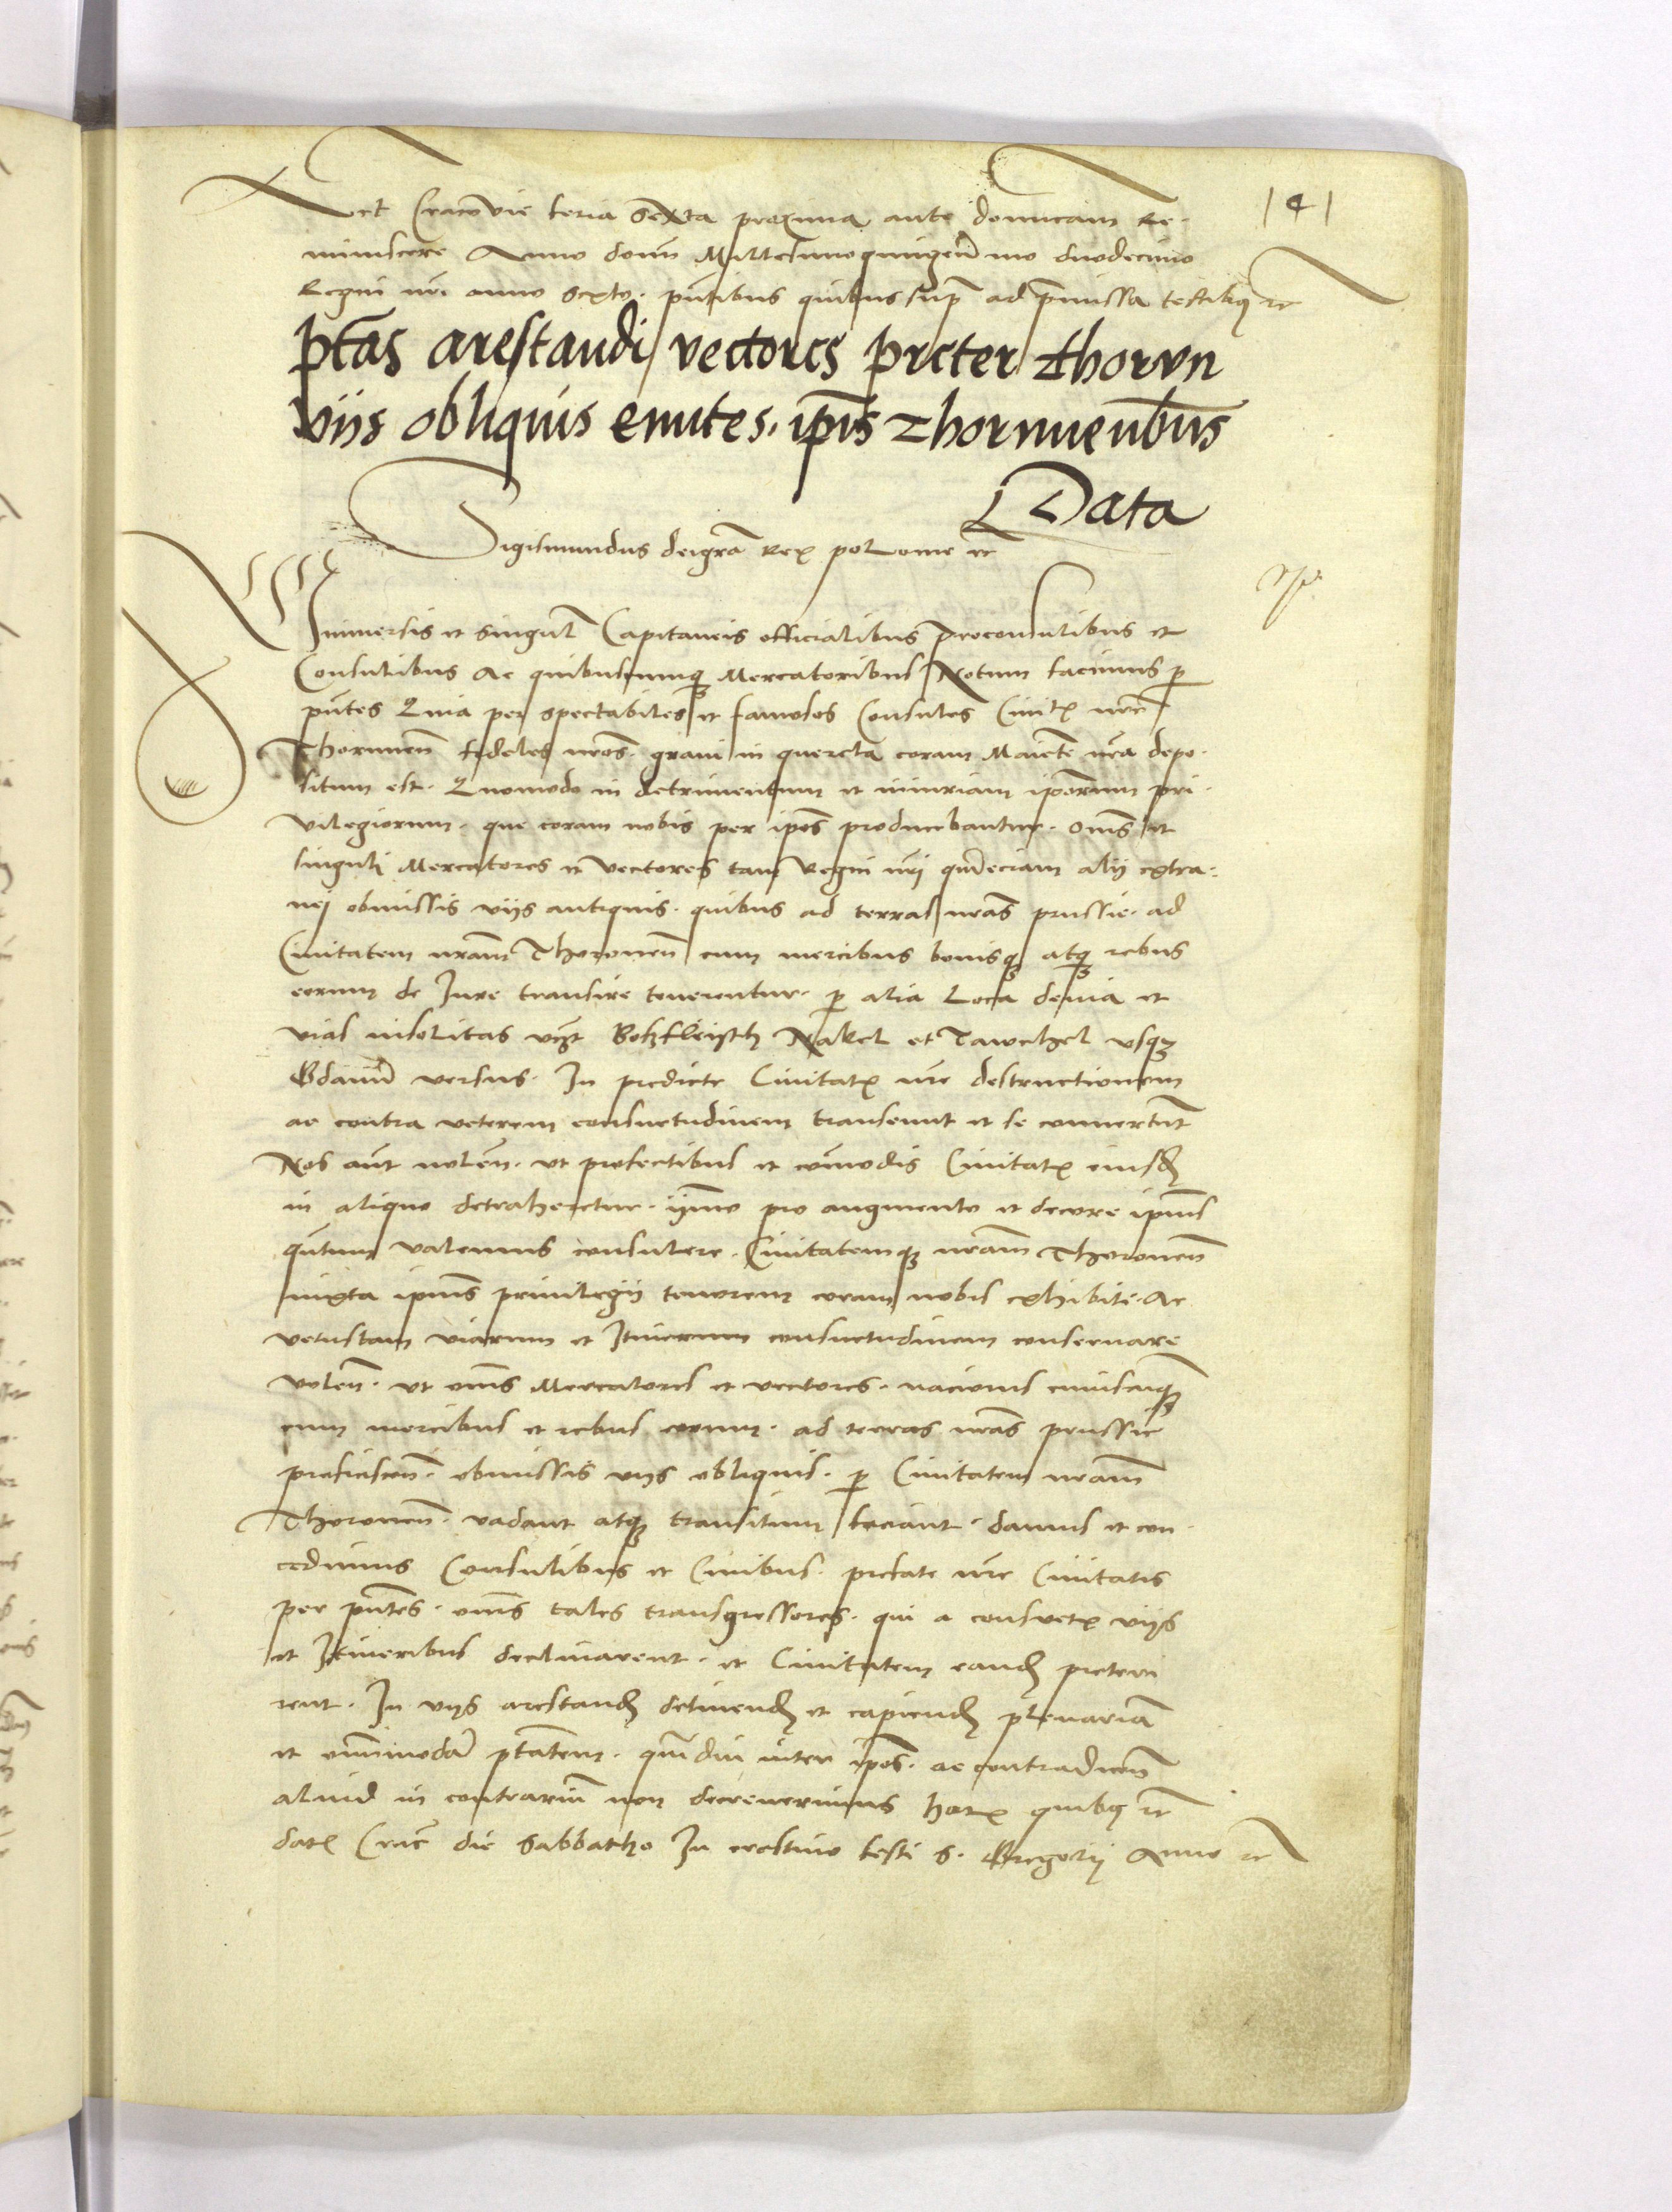 Act Cracovie feria Sexta proxima ante dominicam Re-
miniscere Anno domi Millesimoquingen mo duodecimo
Regni nri anno Sexto. pntibus quibus supra ad pmissa testibq etc
141
Ptas arestandi vectores preter Thorun
viis obliquis euntes. ipis Thorunenbus
Data
Sigismundus dei gra Rex polonie etc
Universis et singul Capitaneis officialibus proconsulibus et
Consulibus Ac quibuscumq Mercatoribus Notum facimus p
pntes Quia per spectabiles et famosos Consules Civit nre
Thorunen fideles nros. gravi in querela coram Maiete nra depo-
situm est. Quomodo in detrimentum et iniuriam ipsorum pri-
vilegiorum. que coram nobis per ipos producebantur. oms et
singuli Mercatores et vectores tam Regni nri qm eciam alij extra-
nei obmissis viis antiquis. quibus ad terras nras prussie. ad
Civitatem nram Thoronen cum mercibus bonisq atq rebus
eorum de Jure transire tenerentur. p alia Loca devia et
vias insolitas vcz Bokfleisch Nakel et Tawchel usq
Gdanu versus. In predicte Civitat nre destructionem
ac contra veterem consuetudinem transeunt et se convertunt
Nos aut nolen. ut profectibus et comodis Civitat eiusd
in aliquo detraheretur. ymmo pro augmento et decore ipius
qntum valemus consulere. Civitatemq nram Thoronen
iuxta ipius privilegii tenorem coram nobis exhibiti. Ac
vetustam viarum et Itinerum consuetudinem conservare
volen. ut oms Mercatores et vectores. nacionis cuiuscuq
cum mercibus et rebus eorum. ad terras nras prussie
proficiscen. obmissis viis obliquis. p Civitatem nram
Thoronen. vadant atq transitum faciant. damus et con-
cedimus Consulibus et Civibus. prefate nre Civitatis
per pntes. oms tales transgressores. qui a consuet viis
et Itineribus declinarent. et Civitatem eand preteri
rent. In viis arestand detinend et capiend plenariam
et omnimodam ptatem. qm diu inter ipos. ac contradicen
aliud in contrarium non decreverimus harx quibq etc
dat Crac die Sabbatho In crastino festi S. Gregorii Anno etc